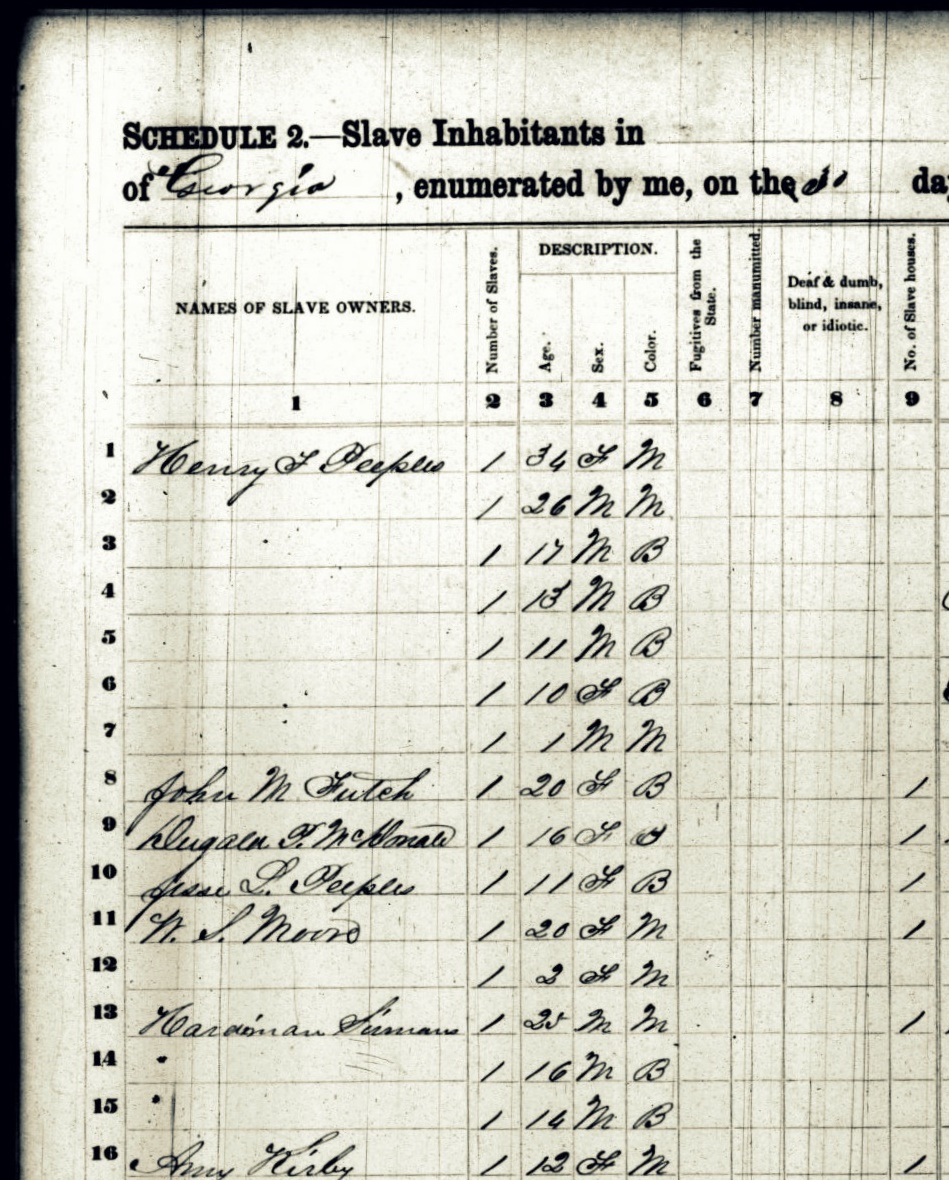 SCHEDULE 2.—Slave Inhabitants in
of Georgia, enumerated by me, on the da
NAMES OF SLAVE OWNERS. Number of Slaves. DESCRIPTION. Age. Sex. Color. Fugitives from the State. Number manumitted. Deaf & dumb, blind, insane, or idiotic. No. of Slave houses.
1 2 3 4 5 6 7 8 9
1 Henry F Peeples 1 34 F M
2 1 26 M M
3 1 17 M B
4 1 13 M B
5 1 11 M B
6 1 10 F B
7 1 1 M M
8 John M Futch 1 20 F B 1
9 P. McDonald 1 16 F 1
10 Jesse L. Peeples 1 11 F B 1
11 W. S. Moore 1 20 F M 1
12 1 2 F M
13 Hardiman Sirmans 1 25 M M 1
14 " 1 16 M B
15 " 1 14 M B
16 Amy Kirby 1 12 F M 1